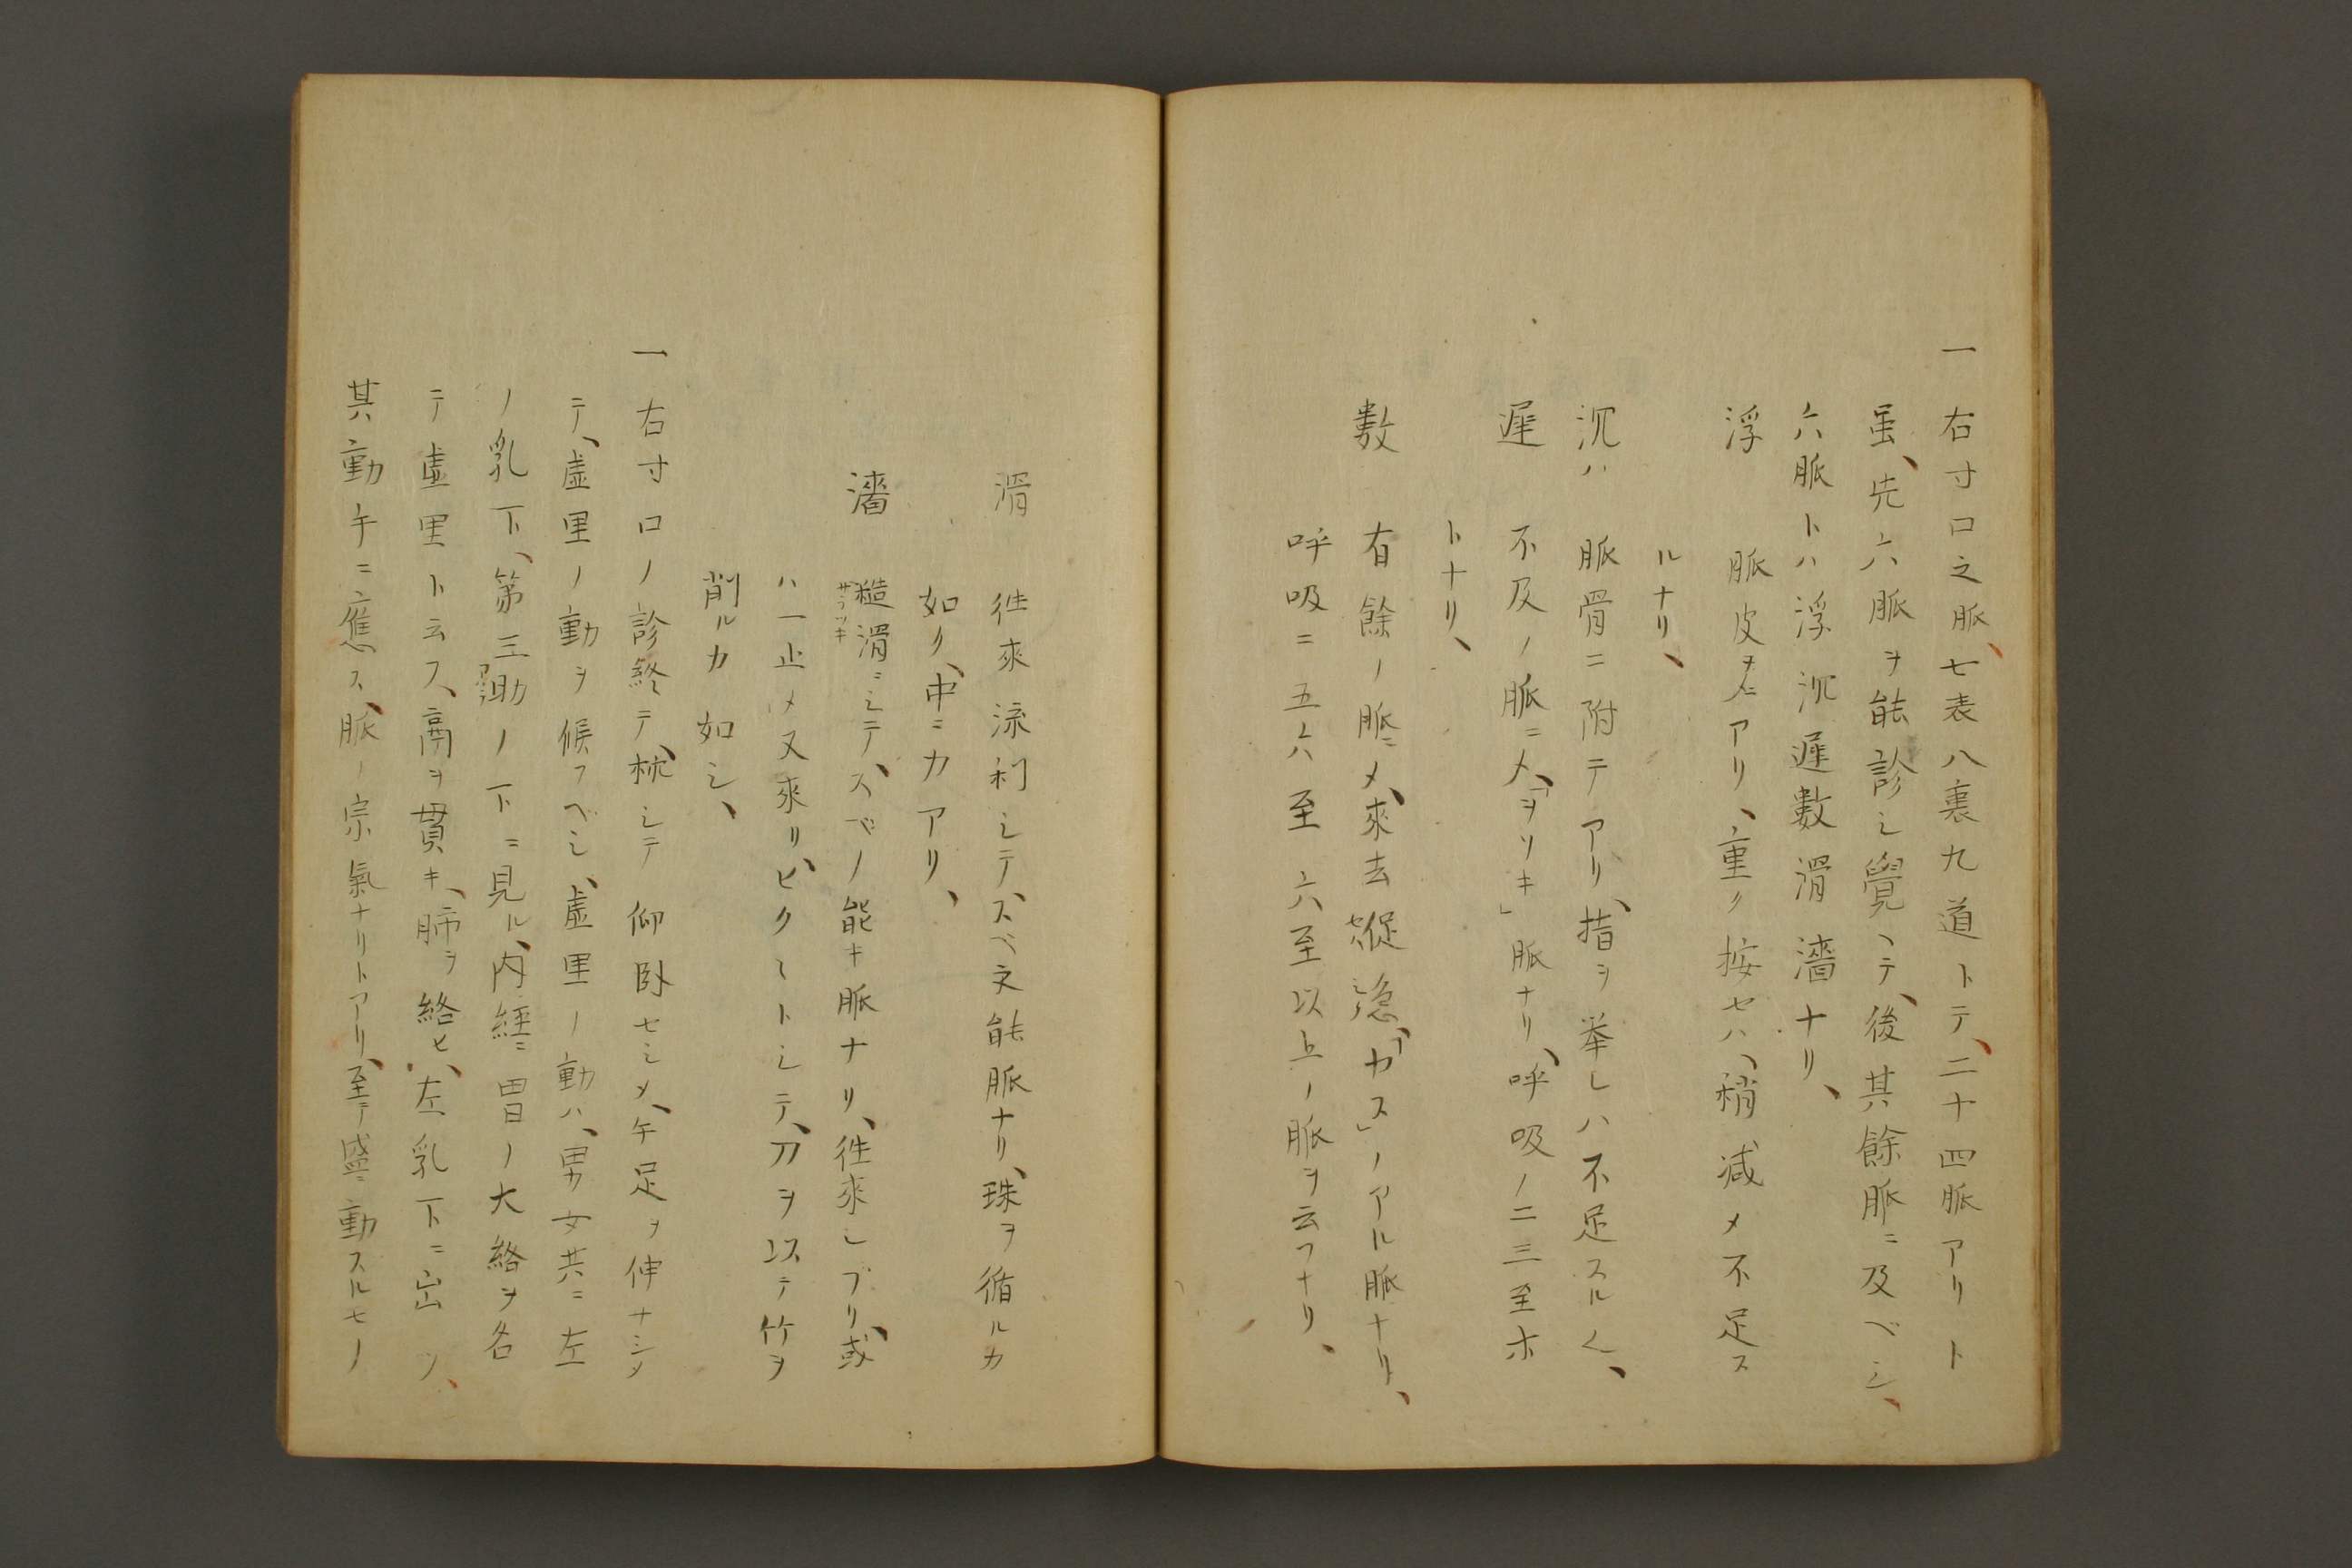 一右寸口之脈、七表八裏九道トテ、二十四脈アリト
虽、先六脈ヲ能診シ覺ヘテ、後其餘脈ニ及ベシ、
六脈トハ浮沉遲數滑濇ナリ、
浮 脈皮ヲニアリ、重ク按セハ、稍減メ不足ス
ルナリ、
沉ハ 脈骨ニ附テアリ、指ヲ举レハ不足スル
遲 不及ノ脈ニメ、「ヲソキ」脈ナリ、呼吸ノ二三至ホ
トナリ、
數 有餘ノ脈ニメ、來去
「カス」ノアル脈ナリ、
呼吸ニ五六至六至以上ノ脈ヲ云フナリ、
滑 徃來流利シテ、スベ文能脈ナリ、珠ヲ循ルカ
如ク、中ニカアリ、
濇 糙滑ニシテ、スベノ能キ脈ナリ、徃來シブリ、或
サラツキ
ハ一止メ又來リ、ピク〱トシテ、刀ヲ以テ竹ヲ
削ルカ如シ、
一右寸口ノ診終テ、枕シテ仰臥セシメ、手足ヲ伸ナシメ
テ、虛里ノ動ヲ候フベシ、虛里ノ動ハ、男女共ニ左
ノ乳下、第三肋ノ下ニ見ル、内經ニ胃ノ大絡ヲ名
テ虛里ト云フ、鬲ヲ貫キ、肺ヲ絡ヒ、左乳下ニ出ツ、
其動手ニ應ス、脈ノ宗氣ナリトアリ、至テ盛ニ動スルモノ